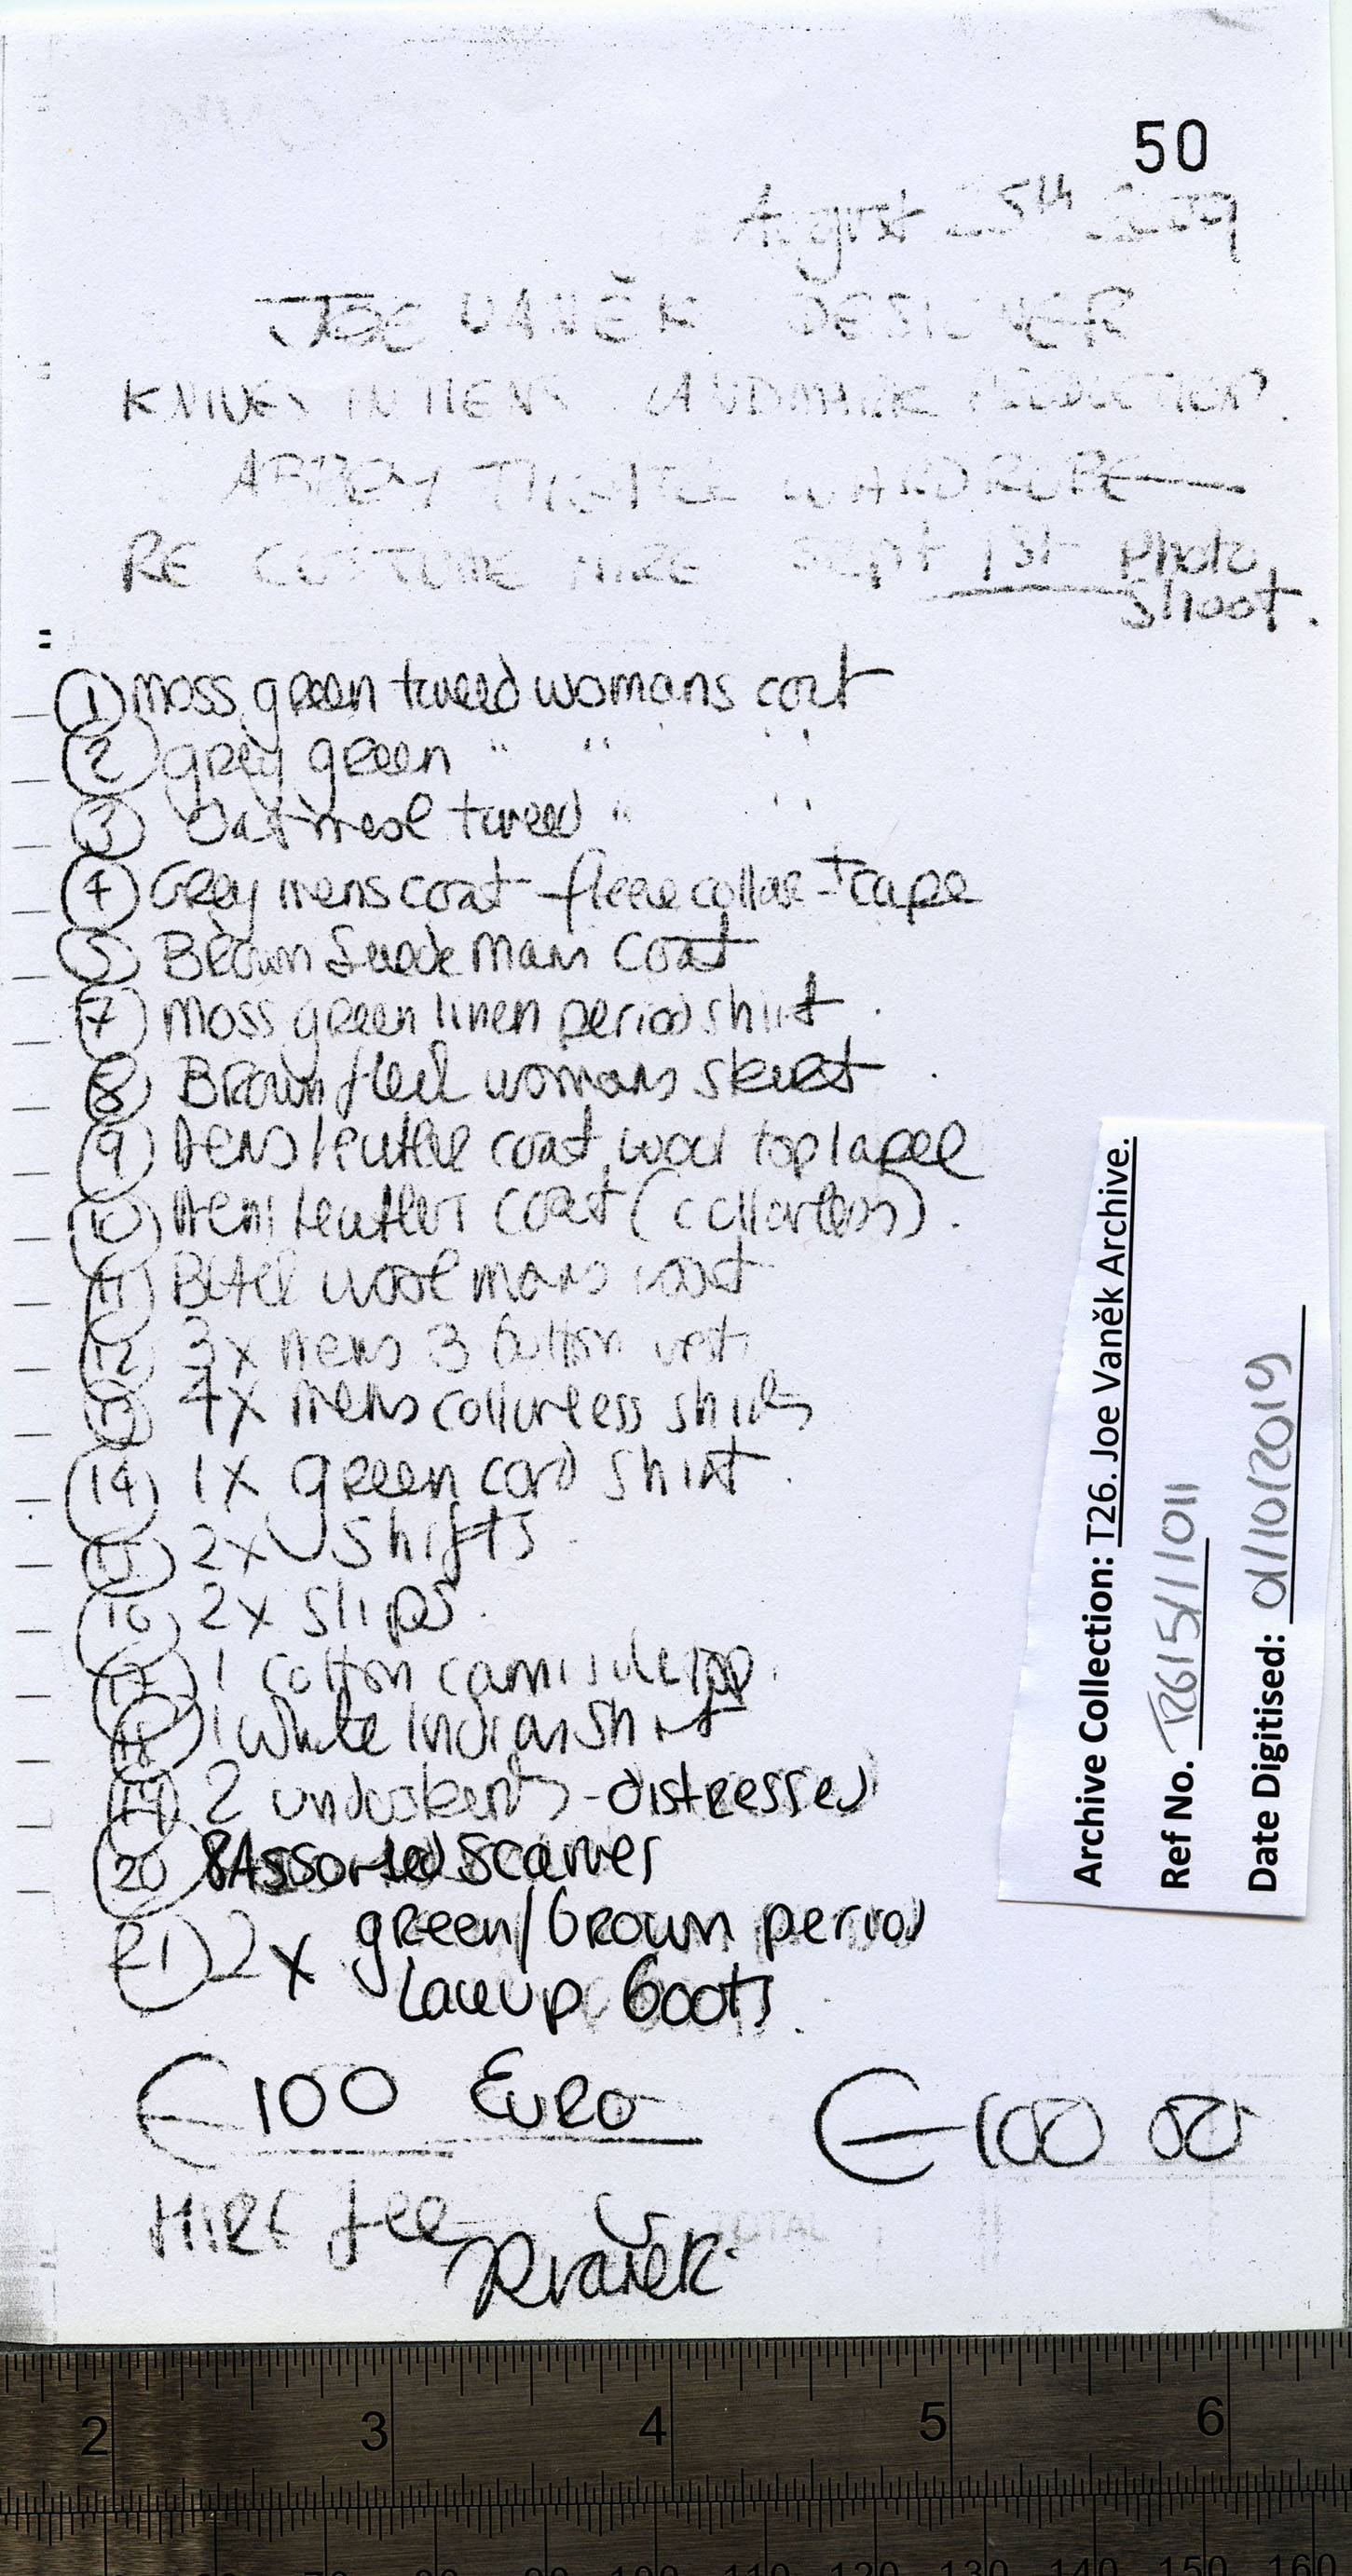 50
August 25th 2009
JOE VANĚK DESIGNER
KNIVES IN HENS LANDMARK PRODUCTION.
ABBEY THEATRE WARDROBE
RE COSTUME HIRE Sept 1st Photo
Shoot.
1 moss green tweed womans coat
2 grey green " " "
3 Oatmeal tweed " "
4 Grey mens coat - fleece collar + cape
5 Brown Suede Mans Coat
7 Moss green linen period shirt.
8 Brown womans skirt.
9 Mens leather coat, wool top lapel
10 Mens leather coat (collarless).
11 wool mans coat
12 3x mens 3 button vests
13 4x mens collarless shirts
14 1x green cord shirt.
15 2x shifts.
16 2x slips.
17 1 cotton camisole top.
18 1 White Indian shirt
19 2 underskirts - distressed
20 8 Assorted Scarves
21 2x green/brown period
Laceup boots.
€100 Euro €100 00
HIRE fee
TOTAL
JRVaněk
Archive Collection: T26. Joe Vaněk Archive.
Ref No. T26/5/1/1011
Date Digitised: 01/10/2019
2 3 4 5 6
70 80 90 100 110 120 130 140 150 160